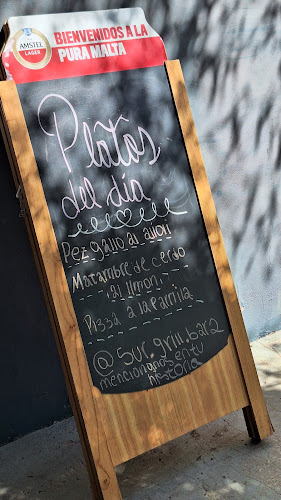 AMSTEL
LAGER
BIENVENIDOS A LA
PURA MALTA
Platos
del día
Pez gallo al alioli
Matambre de cerdo
al limon
Pizza a la parrilla
@sur.grill.bar2
mencionanos en tu
historia